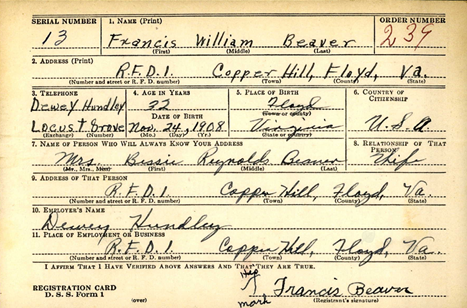 SERIAL NUMBER 1. NAME (Print) ORDER NUMBER
13 Francis William Beaver 239
(First) (Middle) (Last)
2. ADDRESS (Print)
R.F.D.1. Copper Hill, Floyd, Va.
(Number and street or R. F. D. number) (Town) (County) (State)
3. TELEPHONE 4. AGE IN YEARS 5. PLACE OF BIRTH 6. COUNTRY OF CITIZENSHIP
Dewey Hundley 32 Floyd
(Town or county)
DATE OF BIRTH
Locust Grove Nov. 24, 1908 Virginia U.S.A
(Exchange) (Number) (Mo.) (Day) (Yr.) (State or country)
7. NAME OF PERSON WHO WILL ALWAYS KNOW YOUR ADDRESS 8. RELATIONSHIP OF THAT PERSON
Mrs. Bessie Reynolds Beaver Wife
(Mr., Mrs., Miss) (First) (Middle) (Last)
9. ADDRESS OF THAT PERSON
R.F.D.1. Copper Hill, Floyd, Va
(Number and street or R. F. D. number) (Town) (County) (State)
10. EMPLOYER'S NAME
Dewey Hundley
11. PLACE OF EMPLOYMENT OR BUSINESS
R.F.D.1. Copper Hill, Floyd, Va.
(Number and street or R. F. D. number) (Town) (County) (State)
I AFFIRM THAT I HAVE VERIFIED ABOVE ANSWERS AND THAT THEY ARE TRUE.
REGISTRATION CARD his
D. S. S. Form 1 (over) mark Francis Beaver
(Registrant's signature)